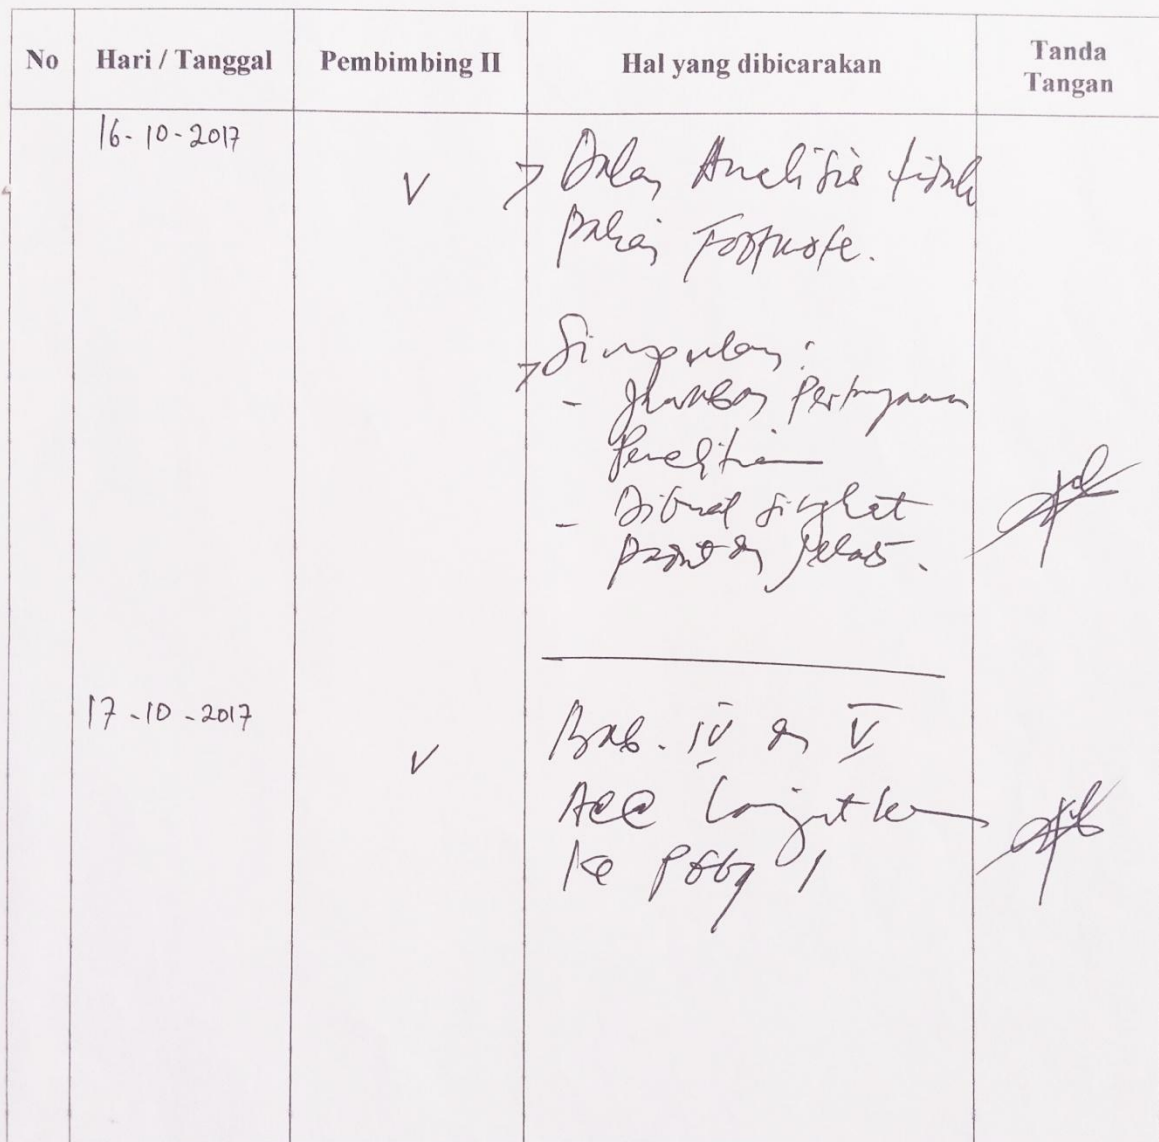 No Hari / Tanggal Pembimbing II Hal yang dibicarakan Tanda Tangan
16-10-2017 V > Dalam Analisis tidak
pakai Footnote.
> Simpulan :
- Jawaban Pertanyaan
Penelitian
- Dibuat singkat
padat dan jelas.
17-10-2017 V Bab. IV dan V
Acc Lanjutkan
ke Pbbg I